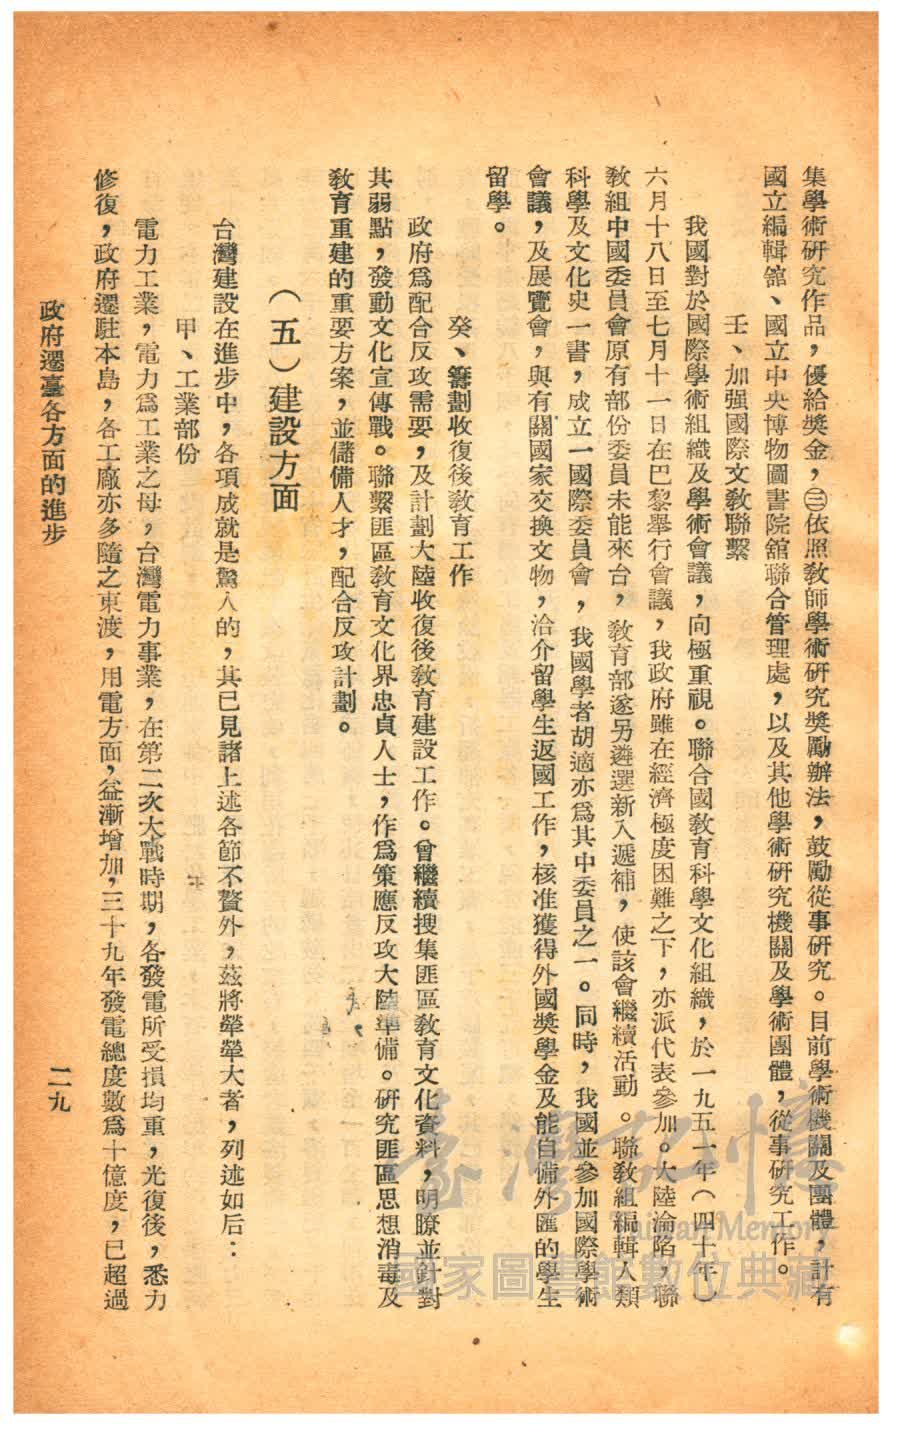 集學術研究作品，優給獎金，㊂依照教師學術研究獎勵辦法，鼓勵從事研究。目前學術機關及團體，計有
國立編輯舘、國立中央博物圖書院舘聯合管理處，以及其他學術研究機關及學術團體，從事研究工作。
壬、加强國際文教聯繫
我國對於國際學術組織及學術會議，向極重視。聯合國教育科學文化組織，於一九五一年（四十年）
六月十八日至七月十一日在巴黎舉行會議，我政府雖在經濟極度困難之下，亦派代表參加。大陸淪陷，聯
教組中國委員會原有部份委員未能來台，教育部遂另遴選新入遞補，使該會繼續活動。聯教組編輯人類
科學及文化史一書，成立一國際委員會，我國學者胡適亦爲其中委員之一。同時，我國並參加國際學術
會議，及展覽會，與有關國家交換文物，洽介留學生返國工作，核准獲得外國獎學金及能自備外匯的學生
留學。
癸、籌劃收復後教育工作
政府爲配合反攻需要，及計劃大陸收復後教育建設工作。曾繼續搜集匪區教育文化資料，明瞭並針對
其弱點，發動文化宣傳戰。聯繫匪區教育文化界忠貞人士，作爲策應反攻大陸準備。研究匪區思想消毒及
教育重建的重要方案，並儲備人才，配合反攻計劃。
（五）建設方面
台灣建設在進步中，各項成就是驚人的，其已見諸上述各節不贅外，茲將犖犖大者，列述如后：
甲、工業部份
電力工業，電力爲工業之母，台灣電力事業，在第二次大戰時期，各發電所受損均重，光復後，悉力
修復，政府遷駐本島，各工廠亦多隨之東渡，用電方面，益漸增加，三十九年發電總度數爲十億度，已超過
政府遷臺各方面的進步
二九
臺灣記憶
Taiwan Memory
國家圖書館數位典藏